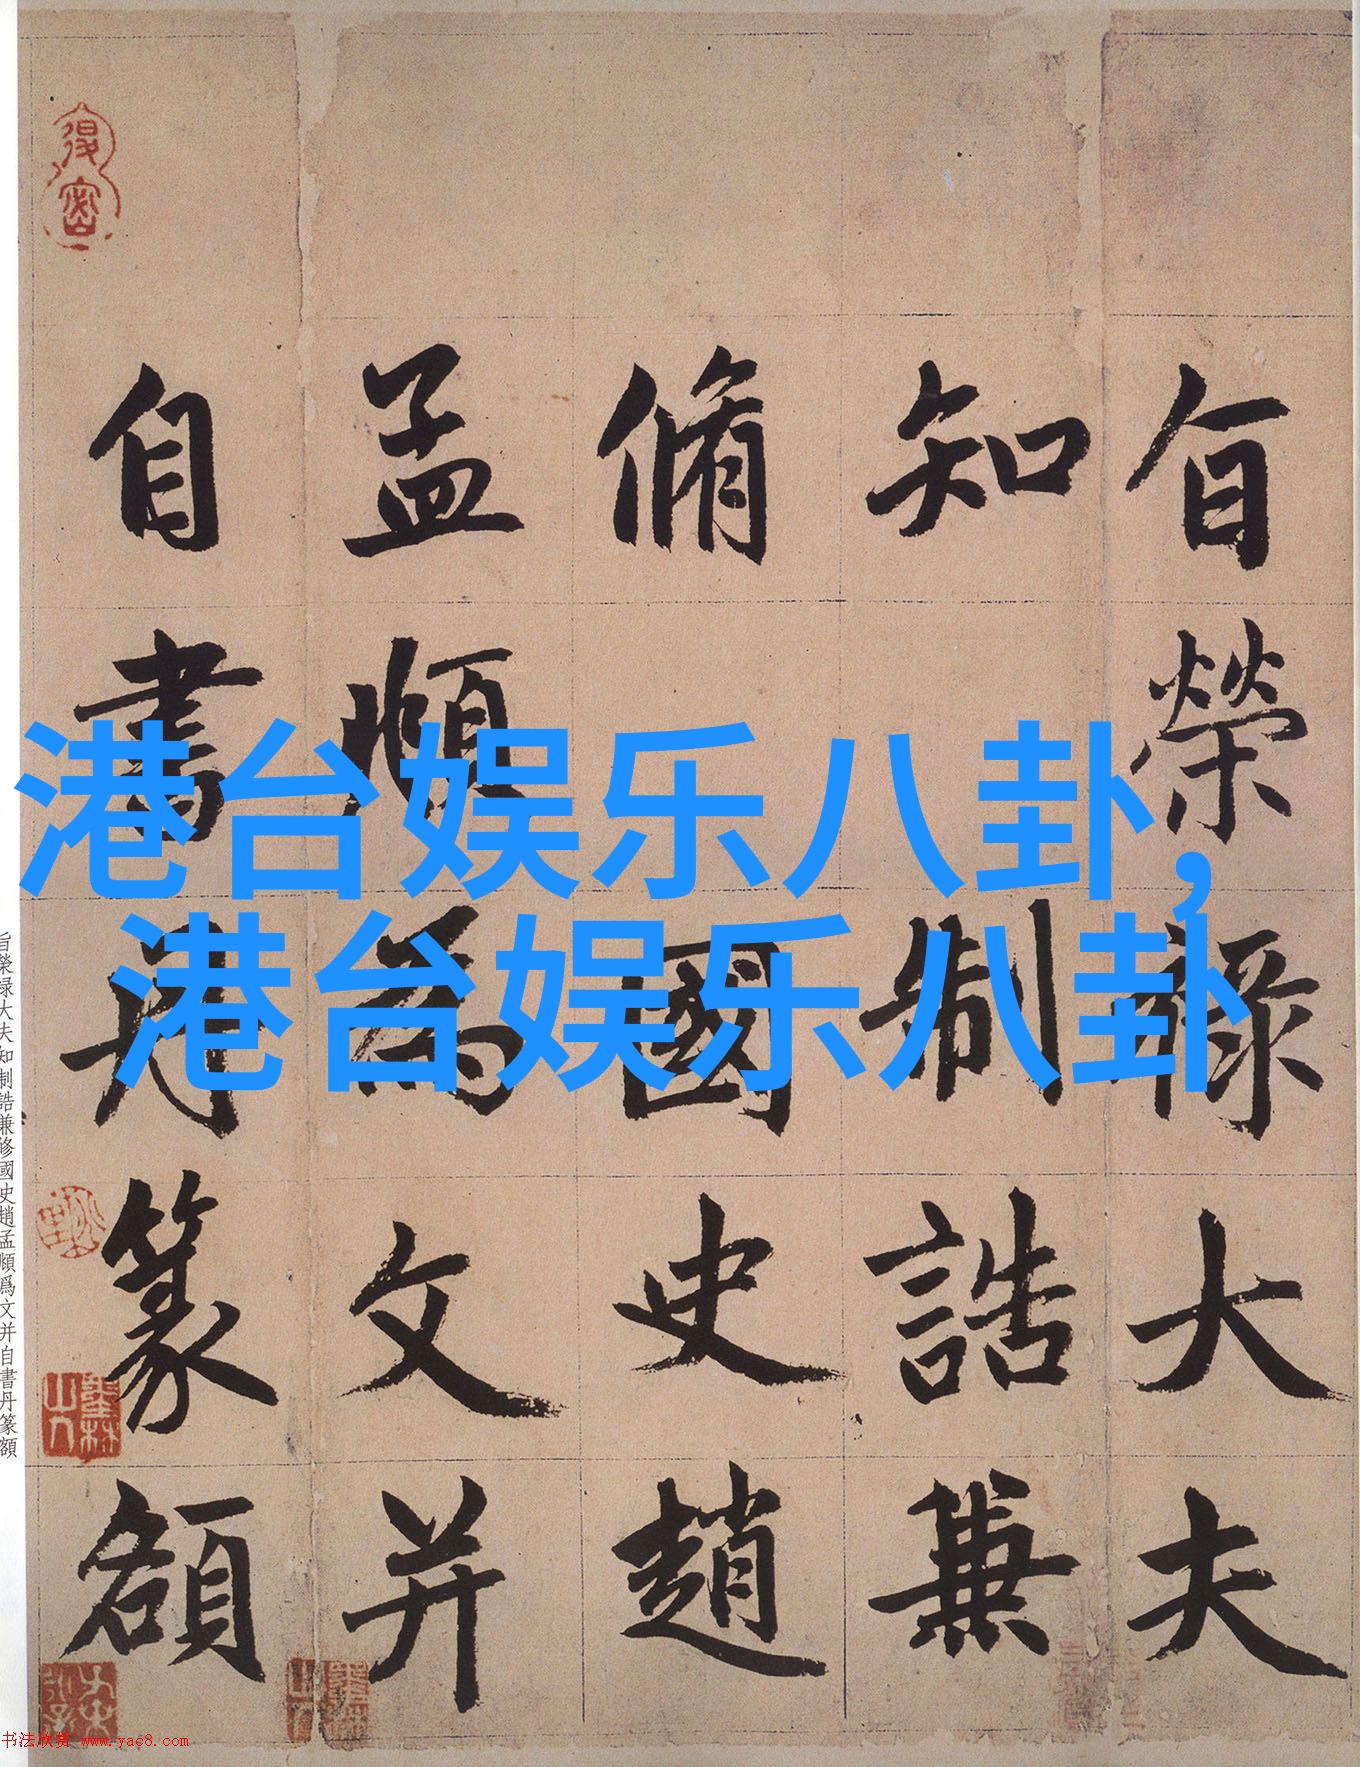 旨榮祿大夫
知制誥兼
脩國史趙
孟頫為文并
自書丹篆額
港台娱乐八卦,
港台娱乐八卦
旨榮禄大夫知制誥兼修國史趙孟頫爲文并自書丹篆額
书法欣赏 www.yac8.com